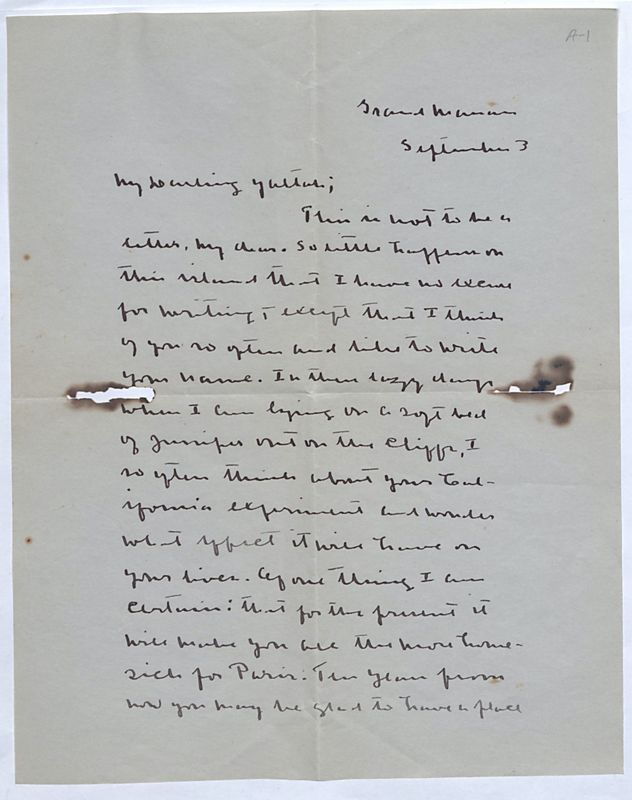 A-1
Grand Manan
September 3
My Darling Yaltah;
This is not to be a
letter, my dear. So little happens on
this island that I have no excuse
for writing, except that I think
of you so often and like to write
your name. In these lazy days
when I am lying on a soft bed
of Juniper out on the Cliffs, I
so often think about your Cal-
ifornia experiment and wonder
what effect it will have on
your lives. Of one thing I am
certain: that for the present it
will make you all the more home-
sick for Paris. Ten years from
now you may be glad to have a place